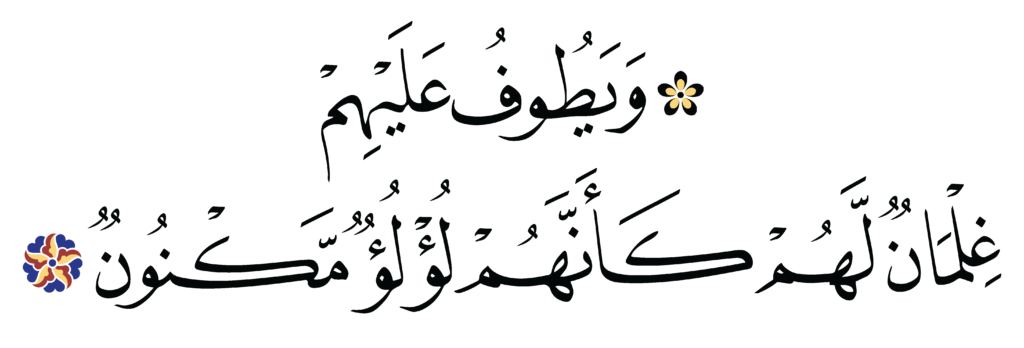 وَيَطُوفُ عَلَيْهِمْ
غِلْمَانٌ لَّهُمْ كَأَنَّهُمْ لُؤْلُؤٌ مَّكْنُونٌ